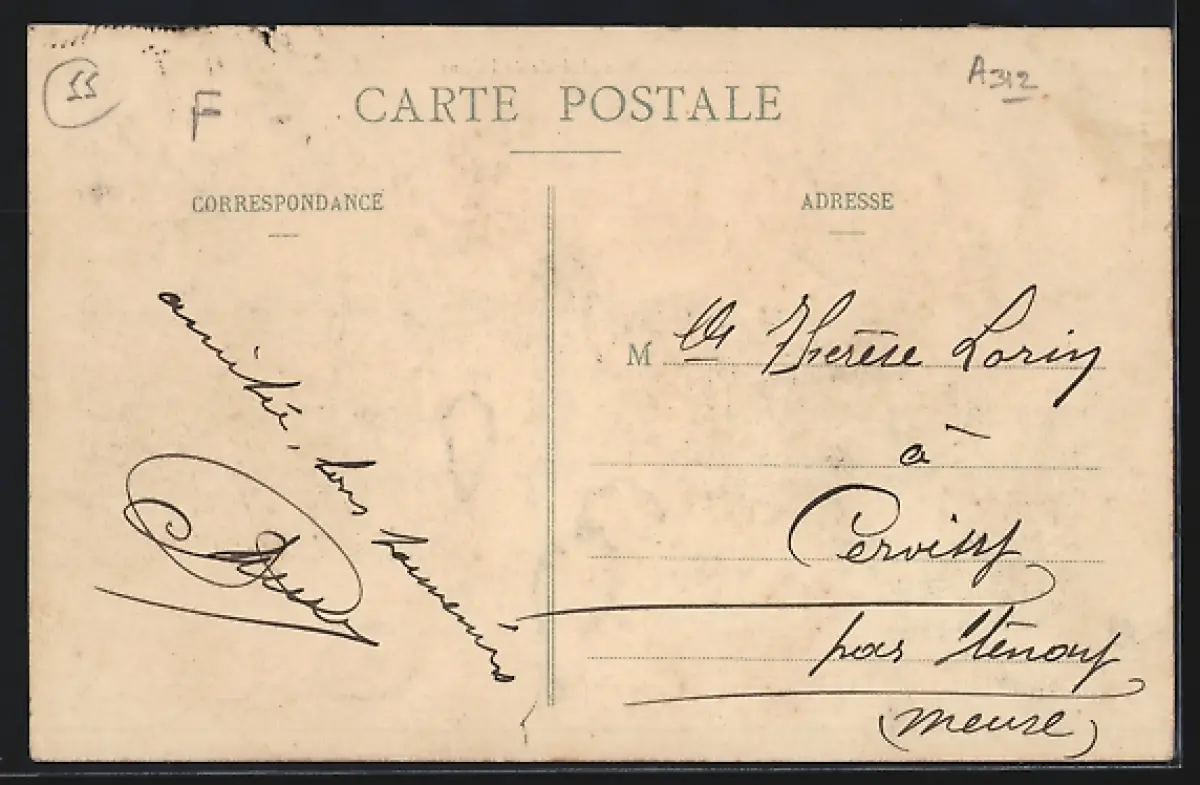 55
F
CARTE POSTALE
A312
CORRESPONDANCE
amitié, bons souvenirs
ADRESSE
M lle Thérèse Lorin
à
Cervisy
par Sténay
(Meuse)